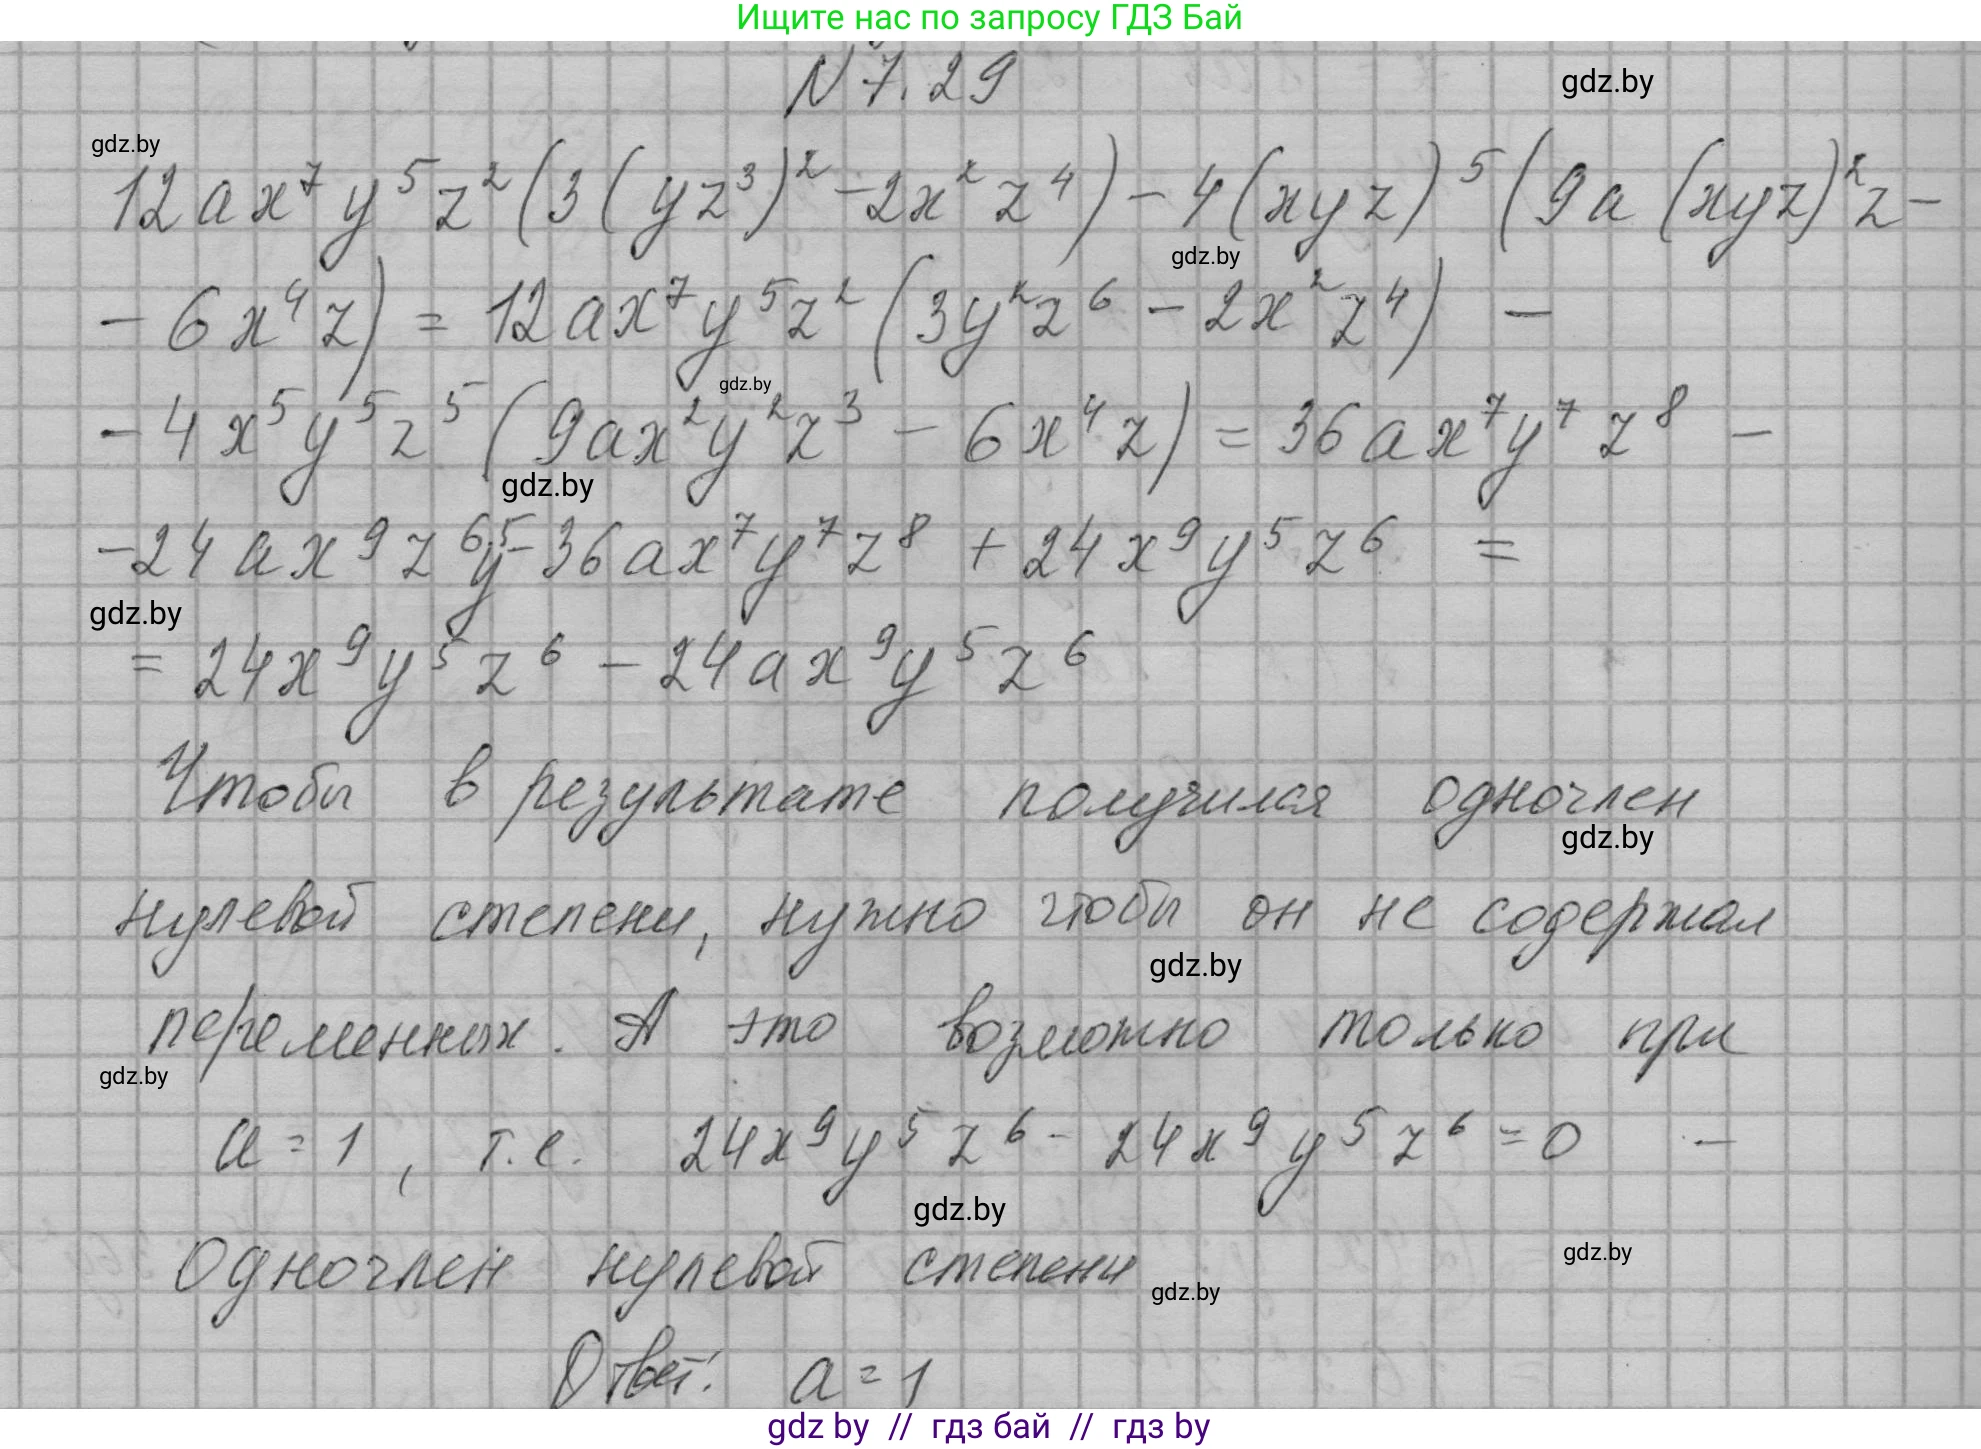 Ищите нас по запросу ГДЗ Бай
N 7.29
gdz.by
gdz.by
12ax⁷y⁵z²(3(yz³)² - 2x²z⁴) - 4(xyz)⁵(9a(xyz)²z -
gdz.by
- 6x⁴z) = 12ax⁷y⁵z²(3y²z⁶ - 2x²z⁴) -
gdz.by
- 4x⁵y⁵z⁵(9ax²y²z³ - 6x⁴z) = 36ax⁷y⁷z⁸ -
gdz.by
- 24ax⁹z⁶y⁵ - 36ax⁷y⁷z⁸ + 24x⁹y⁵z⁶ =
gdz.by
= 24x⁹y⁵z⁶ - 24ax⁹y⁵z⁶
Чтобы в результате получился одночлен
gdz.by
нулевой степени, нужно чтобы он не содержал
gdz.by
переменных. А это возможно только при
gdz.by
a = 1, т.е. 24x⁹y⁵z⁶ - 24x⁹y⁵z⁶ = 0 -
gdz.by
одночлен нулевой степени
gdz.by
gdz.by
Ответ: a = 1
gdz by // гдз бай // гдз by